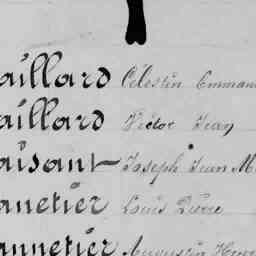 aillard Célestin Emmanu
aillard Victor Jean
aisant Joseph Jean M
anetier Louis Pierre
annetier Augustin Henri